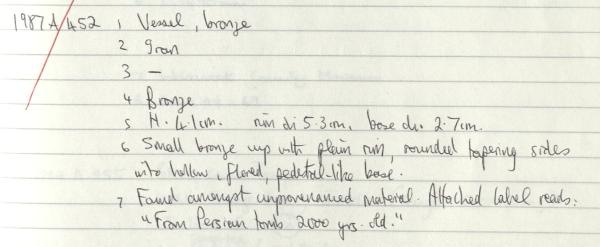 1987A/452 1 Vessel, bronze
2 Iran
3 —
4 Bronze
5 H. 4.1cm. rim di 5.3cm, base di. 2.7cm.
6 Small bronze cup with plain rim, rounded tapering sides
into hollow, flared, pedestal-like base.
7 Found amongst unprovenanced material. Attached label reads:
"From Persian tomb 2000 yrs. old."